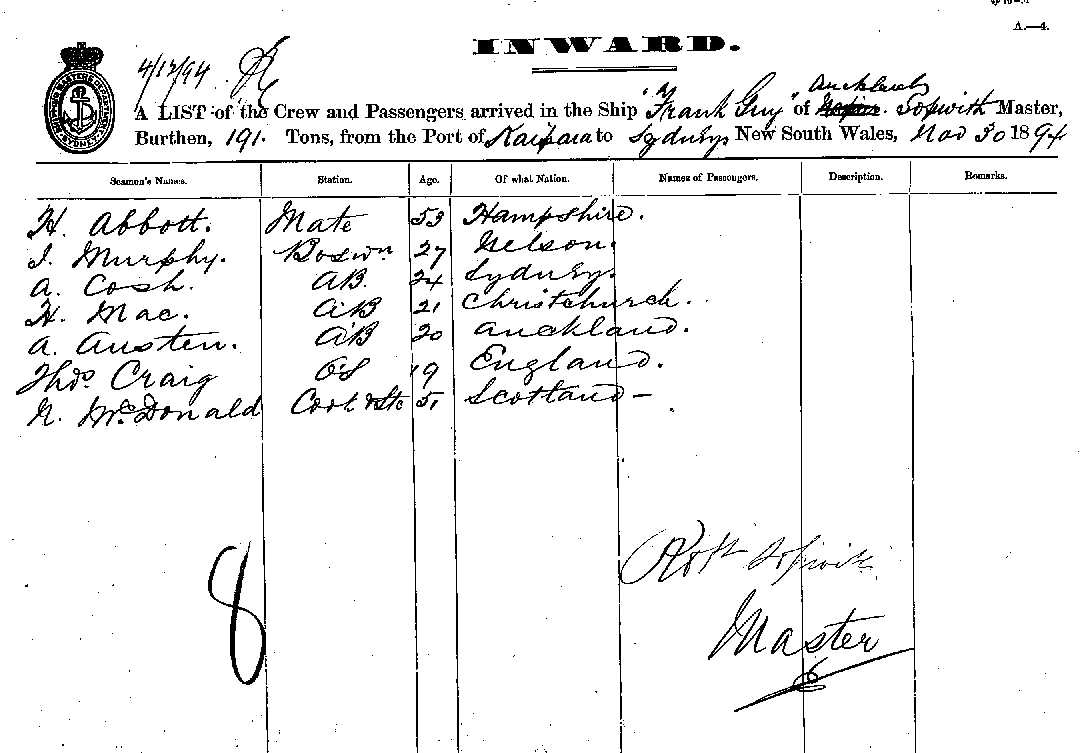 A.—4.
INWARD.
4/12/94
Auckland
A LIST of the Crew and Passengers arrived in the Ship "Frank Guy" of Sopwith Master,
Burthen, 191. Tons, from the Port of Kaipara to Sydney New South Wales, Nov 30 1894
Seamen's Names. Station. Age. Of what Nation. Names of Passengers. Description. Remarks.
H. Abbott. Mate 53 Hampshire.
J. Murphy. Boswn 27 Nelson.
A. Cosh. AB. 24 Sydney.
H. Mac. AB 21 Christchurch.
A. Austen. AB 20 Auckland.
Thos. Craig OS 19 England.
N. McDonald Cook & Std 51 Scotland —
Robt Sopwith
8
Master